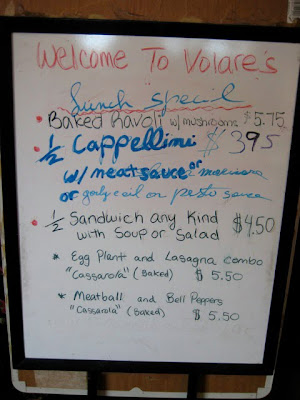 Welcome To Volare's
Lunch Special
• Baked Ravoli w/ mushrooms $5.75
• 1/2 Cappellini $395
w/ meat sauce or marinara
or garlic oil or pesto sauce
• 1/2 Sandwich any Kind $4.50
with Soup or Salad
* Egg Plant and Lasagna combo
"Cassarola" (Baked) $5.50
* Meatball and Bell Peppers
"Cassarola" (Baked) $5.50